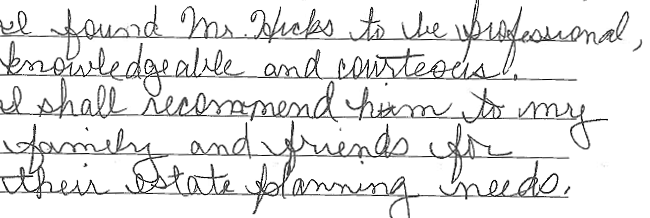 I found Mr. Hicks to be professional,
knowledgeable and courteous!.
I shall recommend him to my
family and friends for
their estate planning needs.